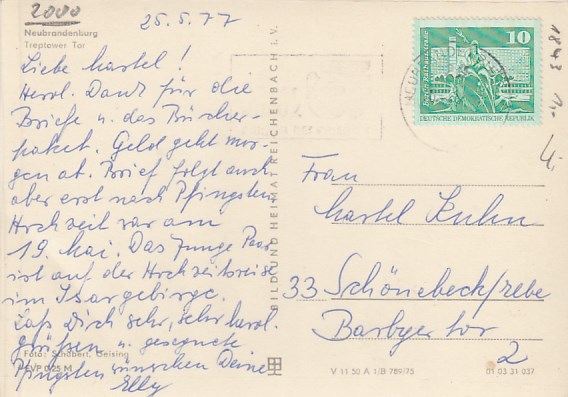 2000
Neubrandenburg
Treptower Tor
25.5.77
Liebe Martel!
Herzl. Dank für die
Briefe u. das Bücher-
paket. Geld geht mor-
gen ab. Brief folgt auch
aber erst nach Pfingsten
Hochzeit war am
19. Mai. Das junge Paar
ist auf der Hochzeitsreise
im Isargebirge.
Laß Dich sehr, sehr herzl.
grüßen u. gesegnete
Pfingsten wünschen Deine
Elly
Foto: Schubert, Geising
EVP 0,25 M
BILD UND HEIMAT REICHENBACH I.V.
10
Berlin, Rathausstraße
DEUTSCHE DEMOKRATISCHE REPUBLIK
1843
Frau
Martel Kuhn
33 Schönebeck/Elbe
Barbyer Tor
2
V 11 50 A 1/B 789/75
01 03 31 037